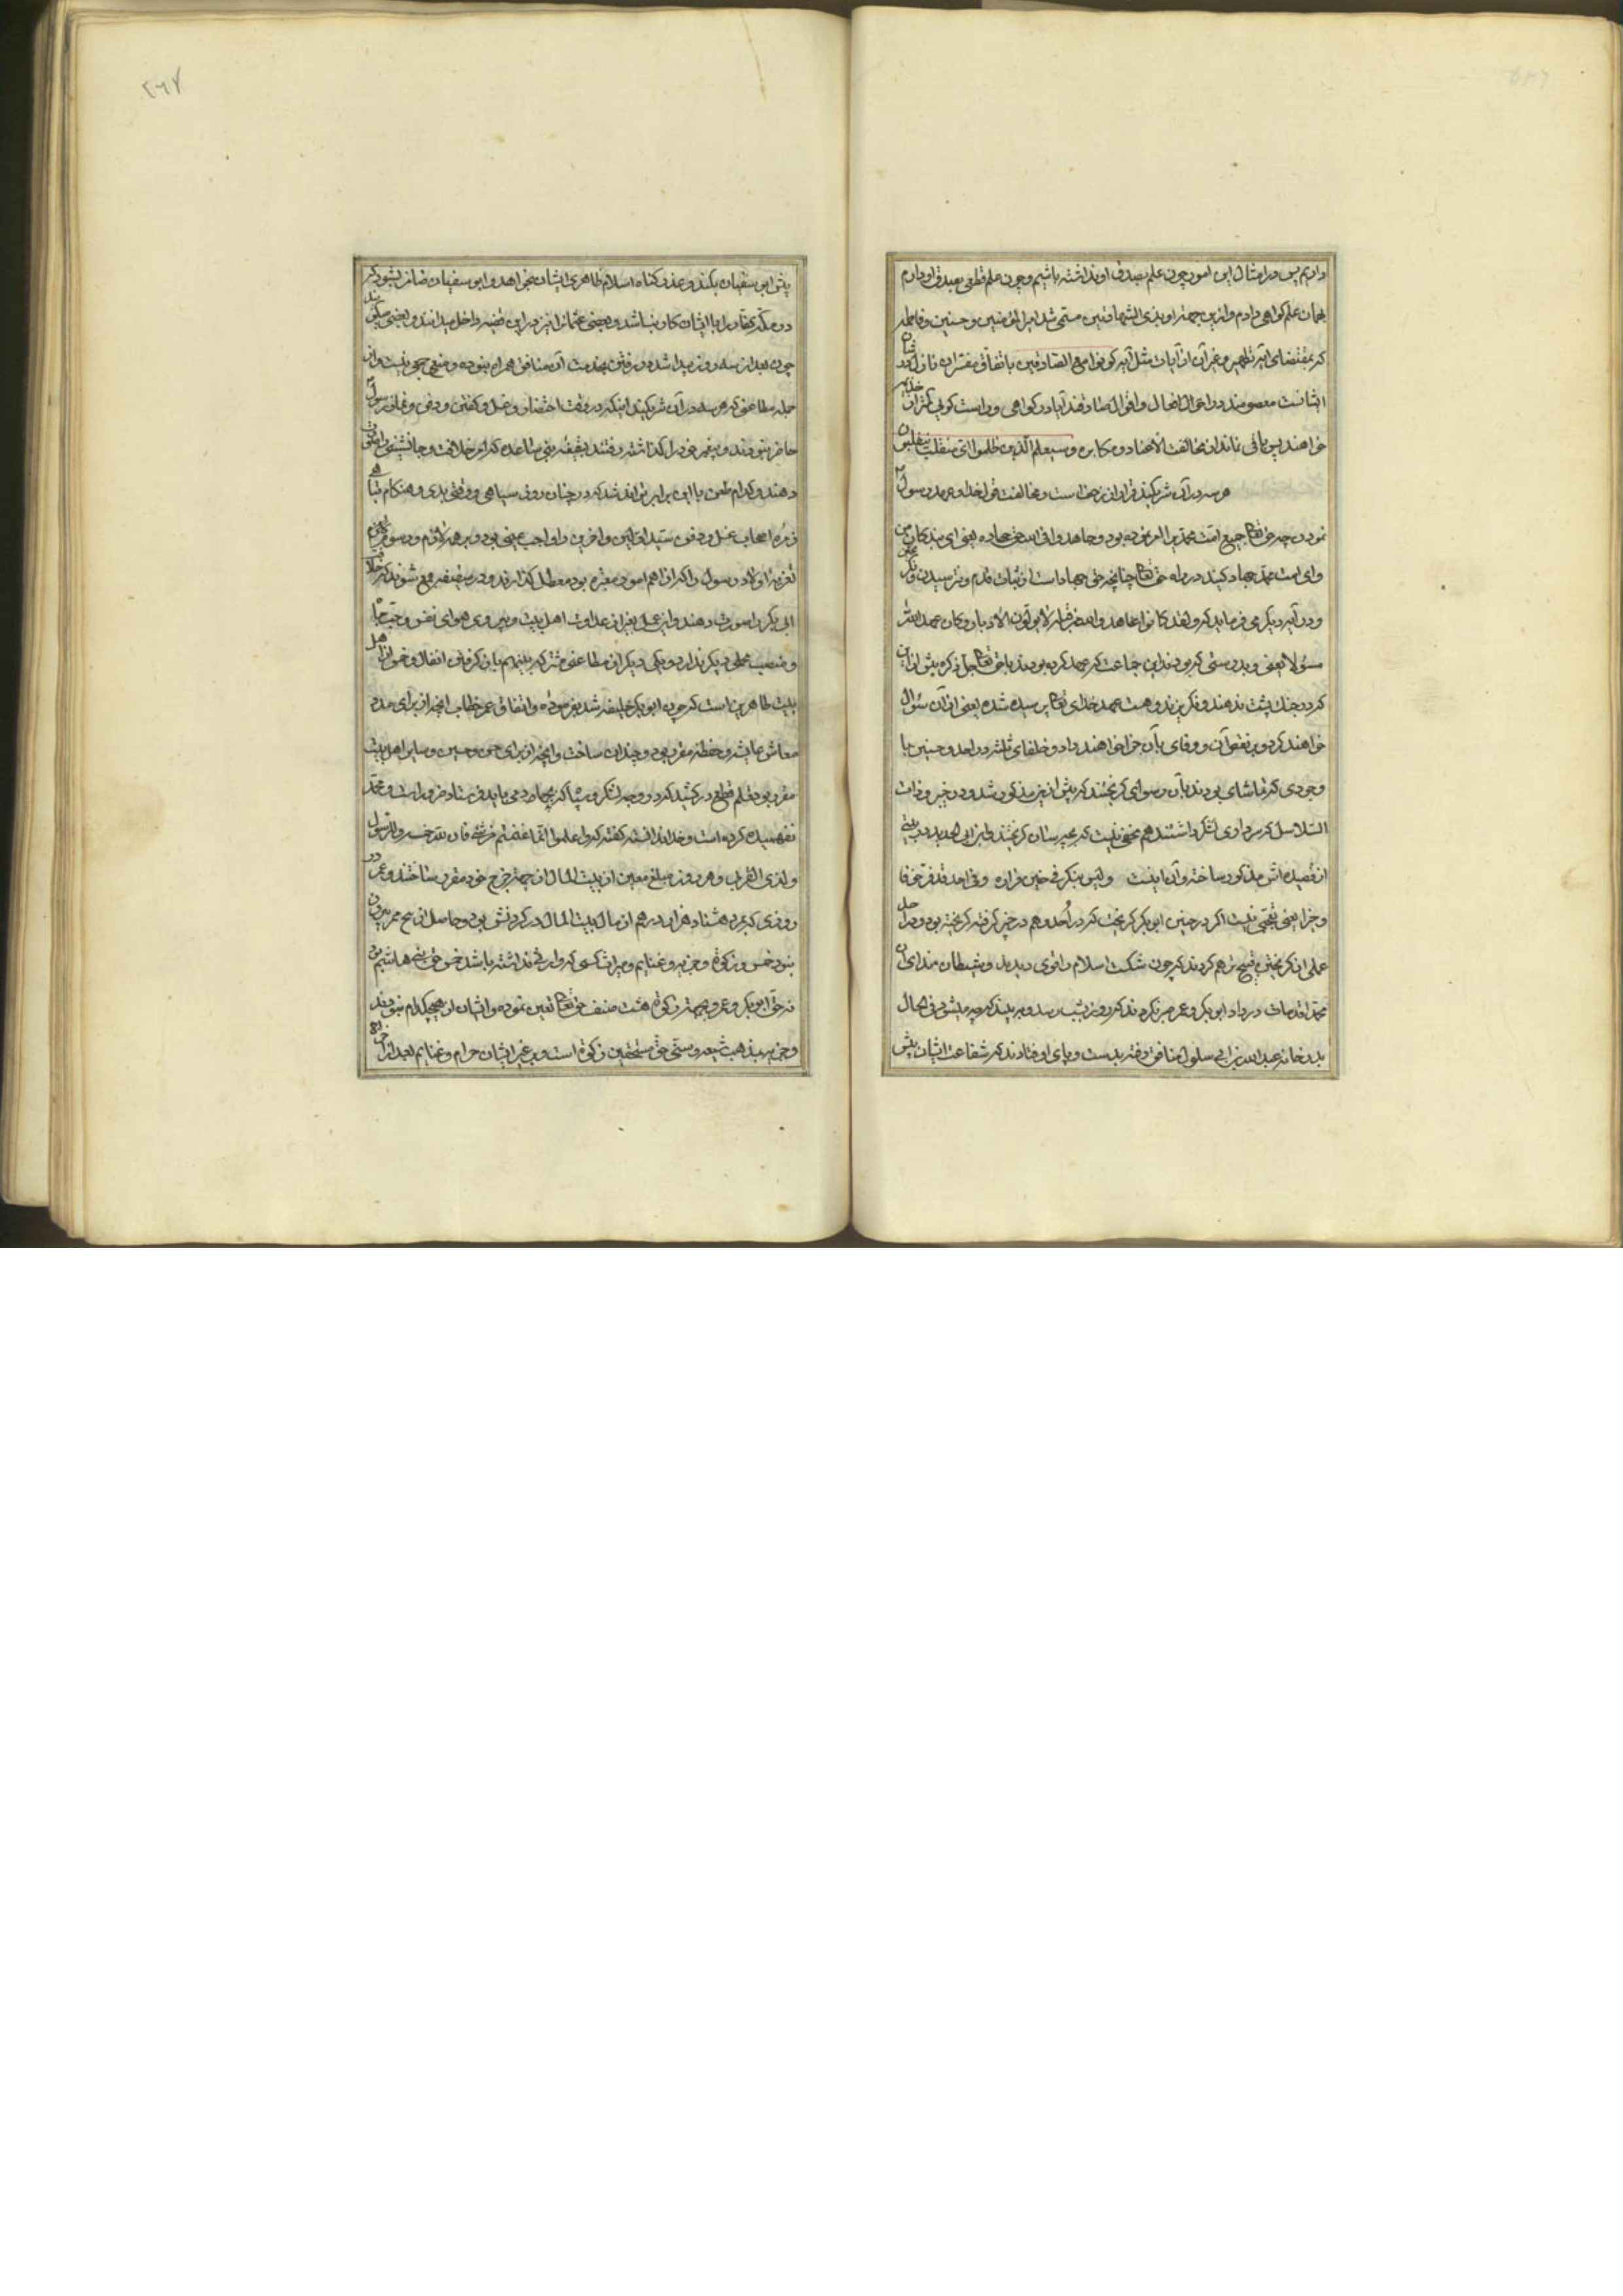 داریم پس در امثال این امور چون علم بصدق او نداشته باشیم و چون علم قطعی بصدق او دارم
بهمان علم گواهی دادم و ازین جهة او بذی الشهادتین مسمی شد امیر المؤمنین و حسنین و فاطمه
که بمقتضای آیه تطهیر و غیر آن از آیات مثل آیه کونوا مع الصادقین باتفاق مفسران نازل در شان
ایشانست معصومند در اعمال افعال و اقوال صادقند آیا در گواهی و راست گوئی کمتر از خذیمه
خواهند پس باقی نماند از مخالفت الا عناد و مکابره و سیعلم الذین ظلموا ای منقلب ینقلبون
هر سه در آن شریکند فرار از زحف است و مخالفت قول خدا و عهد رسول
نمودن چه حق تعالی جمیع امت محمد را امر نموده بود و جاهدوا فی الله حق جهاده یعنی ای بندکان من
و ای امت محمد جهاد کنید در راه حق تعالی چنانچه حق جهاد است از ثبات قدم و نترسیدن و نکریختن
و در آیه دیکر می فرماید که و لقد کانوا عاهدوا الله من قبل لا یولون الادبار و کان عهد الله
مسئولا یعنی و بدرستی که بودند این جماعت که عهد کرده بودند با حق تعالی جل ذکره پیش از این
که در جنک پشت ندهند و نکریزند و هست عهد خدای تعالی پرسیده شده یعنی از آن سئوال
خواهند کرد و بر نقض آن و وفای بآن جزا خواهند داد و خلفای ثلثه در احد و حنین با
وجودی که تماشای بودند بآن رسوای کریختند که پیش ازین مذکور شد و در خیبر و ذات
السلاسل که سرداری لشکر داشتند هم مخفی نیست که بچه سان کریختند و ابن ابی الحدید در بیتی
از قصیده اش مذکور ساخته و آن اینست ولیس بنکر فی حنین فراره وفی احد قد فر خوفا
و خیبرا یعنی تعجبی نیست اگر در حنین ابو بکر کریخت که در اُحد و هم در خیبر کرفته کریخته بود و در احد
عملی از کریختن قبیح تر هم کردند که چون شکست اسلام را قوی دیدند و شیطان ندای ان
محمدا قد مات در داد ابو بکر و عمر صبر نکردند که روز بشب رسد و ببینند که چه میشود فی الحال
بدر خانه عبدالله بن ابی سلول منافق رفته بدست و پای او فتادند که شفاعت ایشان پیش
۲۶۷
پیش ابی سفیان بکند و عذر کناه اسلام ظاهری ایشان بخواهد و ابی سفیان ضامن بشود که
در مکه کفار را با ایشان کار نباشد و بعضی عثمانرا نیز در این قضیه داخل میدانند و بعضی میکویند
چون بعد از سه روز پیدا شد در رفتن بخدمت آن منافق همراه نبوده و منعی هیچ نیست و از
جمله مطاعنی که هر سه در آن شریکند اینکه در وقت احتضار و غسل و کفن و دفن و نماز رسول
حاضر نبودند و پیغمبر خود را کذاشته رفتند بسقیفه بنی ساعده که امر خلافت و جانشینی را
دهند و کدام طعن با این برابر تواند شد که در چنان روز سیاهی و وقتی بدی و هنکام
زمره اصحاب غسل و دفن سید اولین و آخرین را واجب عینی بود و بر همه لازم و رسوم
تعزیه اولاد رسول را که از اهم امور مقرره بود معطل کذارند و در سقیفه جمع شوند که خلافت
ابی بکر را صورت دهند و این عمل بغیر از عداوت اهل بیت و پیروی هوای نفس و حب جاه
و منصب محملی دیکر ندارد و یکی دیکر از مطاعن مشترکه بینهم باز گرفتن انفال و خمس از اهل
بیت طاهرین است که چون ابو بکر خلیفه شد بفرموده و اتفاق عمر خطاب انچه از برای مدد
معاش عایشه و حفصه مقرر بود دو چندان ساخت و انچه از برای حسن و حسین و سایر اهل بیت
مقرر بود قلم قطع در کشید که زر و وجه لشکر و سپاه که بجهاد می باید فرستاد ضرور است و محمد
نفهمیده کرده است و خدا ندانسته کفته که واعلموا انما غنمتم من شیء فان لله خمسه وللرسول
ولذی القربی و هر روز مبلغ معین از بیت المال از جهة خرج خود مقرر ساختند و عمر
روزی که بمرد هشتاد هزار درهم از مال بیت المال در کردنش بود و حاصل این خرج هم بیرون
نبود خمس و زکوة و جزیه و غنایم و میراث کسی که وارثی نداشته باشد خمس حق بنی هاشم بود
نه حق ابو بکر و عمر و بجهة زکوة هشت صنف حق تعالی تعیین نموده و ایشان از هیچکدام نبودند
و جزیه بمذهب شیعه و سنی حق مستحقین زکوة است و بر غیر ایشان حرام و غنایم بعد از اخراج